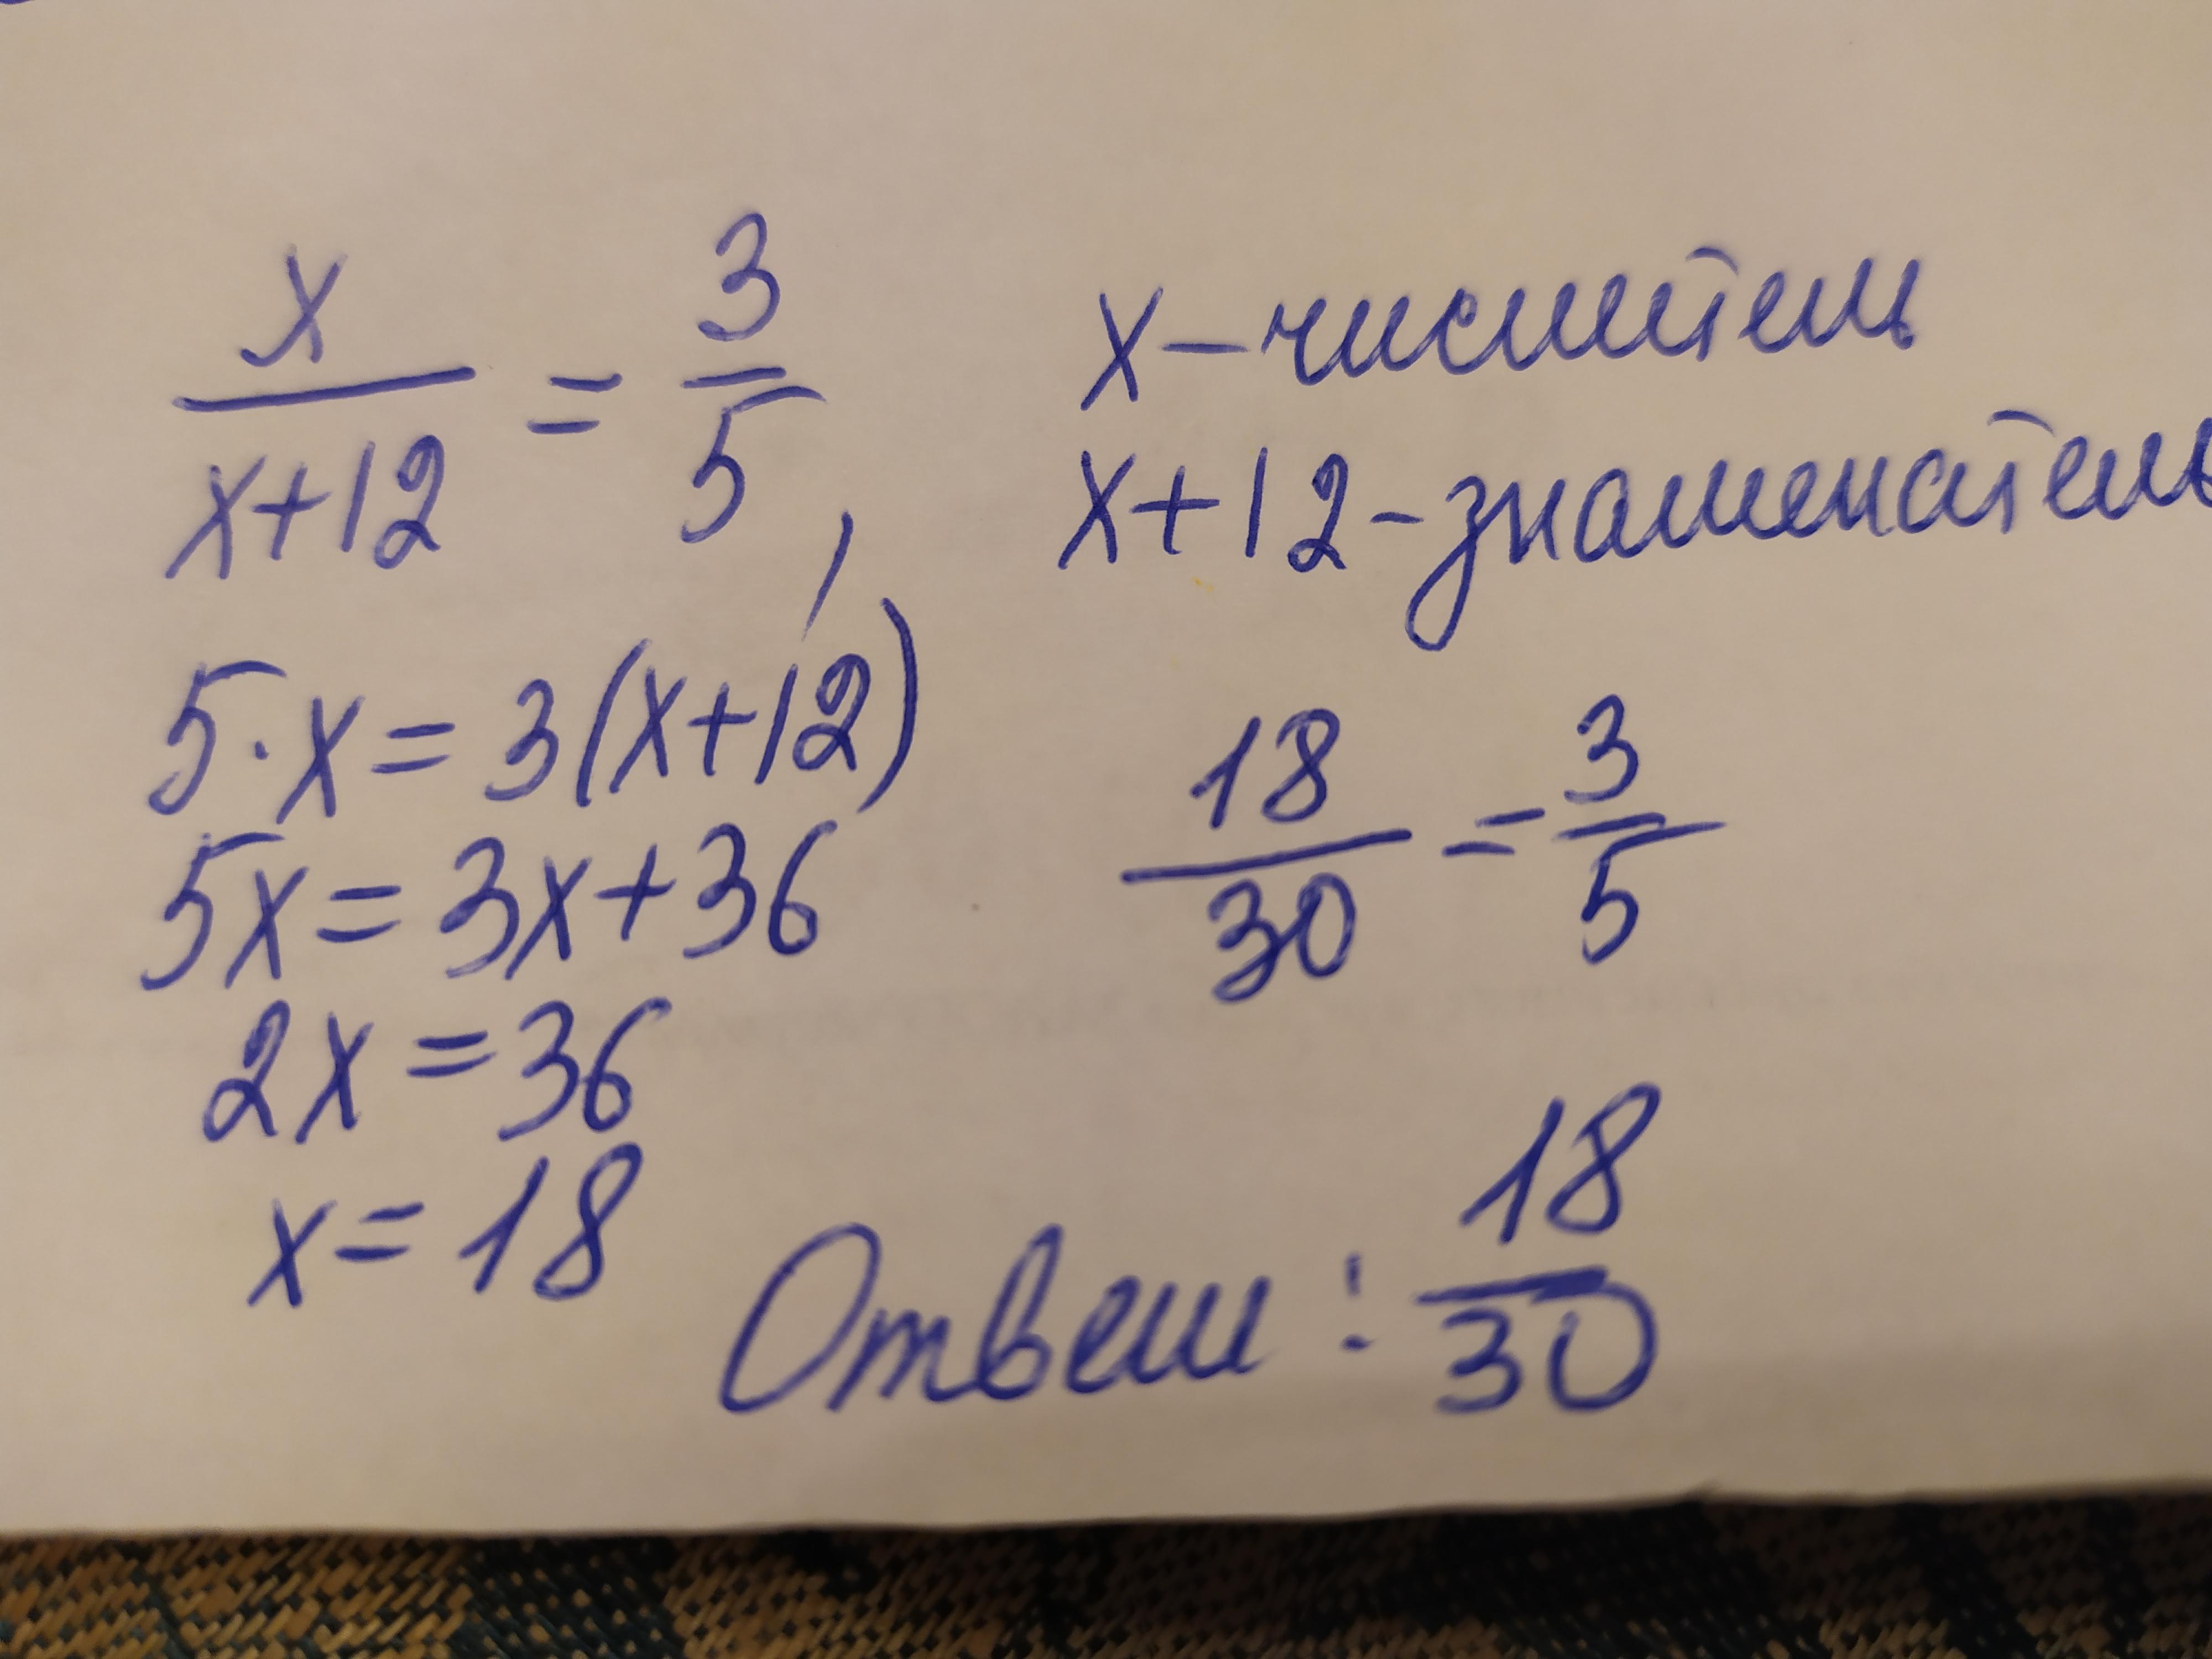 x/(x+12) = 3/5,
x – числитель
x+12 - знаменатель
5·x = 3(x+12)
5x = 3x+36
2x = 36
x = 18
18/30 = 3/5
Ответ: 18/30